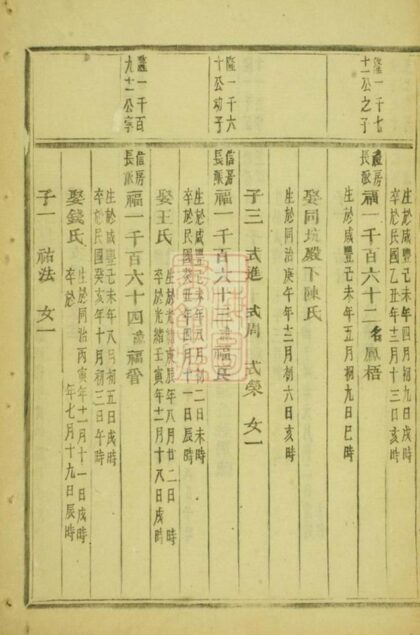 隆一千七
十一公之子
生於咸豐己未年八月初五日戌時
卒於民國乙丑年十二月十三日亥時
禮房
長派
福一千百六十二名鳳梧
生於咸豐己未年五月初九日巳時
娶同坑殿下陳氏
生於同治庚午年十二月初六日亥時
子三 式進 式周 式榮 女一
隆一千六
十公幼子
信房
長派
福一千百六十三諱福氏
生於咸豐己未年八月初二日未時
卒於民國癸丑年四月十一日時
娶王氏
生於光緒庚辰年八月廿二日時
卒於光緒壬寅年十二月十八日戌時
隆一千百
九十二公寧
信房
長派
福一千百六十四諱福
生於咸豐己未年八月初五日戌時
卒於民國癸亥年十月初三日午時
娶錢氏
生於同治丙寅年十一月十一日戌時
卒於 年七月十九日辰時
子一 祐法 女一